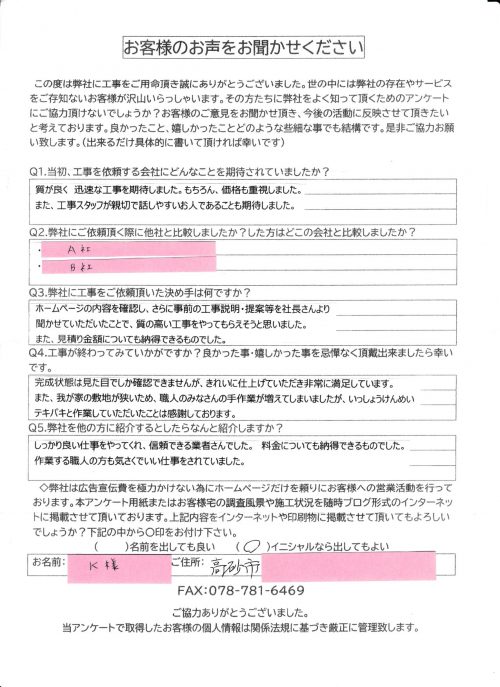 お客様のお声をお聞かせください
この度は弊社に工事をご用命頂き誠にありがとうございました。世の中には弊社の存在やサービス
をご存知ないお客様が沢山いらっしゃいます。その方たちに弊社をよく知って頂くためのアンケート
にご協力頂けないでしょうか？お客様のご意見をお聞かせ頂き、今後の活動に反映させて頂きたい
と考えております。良かったこと、嬉しかったことどのような些細な事でも結構です。是非ご協力お願
い致します。(出来るだけ具体的に書いて頂ければ幸いです)
Q1.当初、工事を依頼する会社にどんなことを期待されていましたか？
質が良く 迅速な工事を期待しました。もちろん、価格も重視しました。
また、工事スタッフが親切で話しやすいお人であることも期待しました。
Q2.弊社にご依頼頂く際に他社と比較しましたか？した方はどこの会社と比較しましたか？
・ A社
・ B社
Q3.弊社に工事をご依頼頂いた決め手は何ですか？
ホームページの内容を確認し、さらに事前の工事説明・提案等を社長さんより
聞かせていただいたことで、質の高い工事をやってもらえそうと思いました。
また、見積り金額についても納得できるものでした。
Q4.工事が終わってみていかがですか？良かった事・嬉しかった事を忌憚なく頂戴出来ましたら幸い
です。
完成状態は見た目でしか確認できませんが、きれいに仕上げていただき非常に満足しています。
また、我が家の敷地が狭いため、職人のみなさんの手作業が増えてしまいましたが、いっしょうけんめい
テキパキと作業していただいたことは感謝しております。
Q5.弊社を他の方に紹介するとしたらなんと紹介しますか？
しっかり良い仕事をやってくれ、信頼できる業者さんでした。 料金についても納得できるものでした。
作業する職人の方も気さくでいい仕事をされていました。
◇弊社は広告宣伝費を極力かけない為にホームページだけを頼りにお客様への営業活動を行って
おります。本アンケート用紙またはお客様宅の調査風景や施工状況を随時ブログ形式のインターネッ
トに掲載させて頂いております。上記内容をインターネットや印刷物に掲載させて頂いてもよろしい
でしょうか？下記の中から〇印をお付け下さい。
( )名前を出しても良い (○)イニシャルなら出してもよい
お名前: K様 ご住所: 高砂市
FAX:078-781-6469
ご協力ありがとうございました。
当アンケートで取得したお客様の個人情報は関係法規に基づき厳正に管理致します。